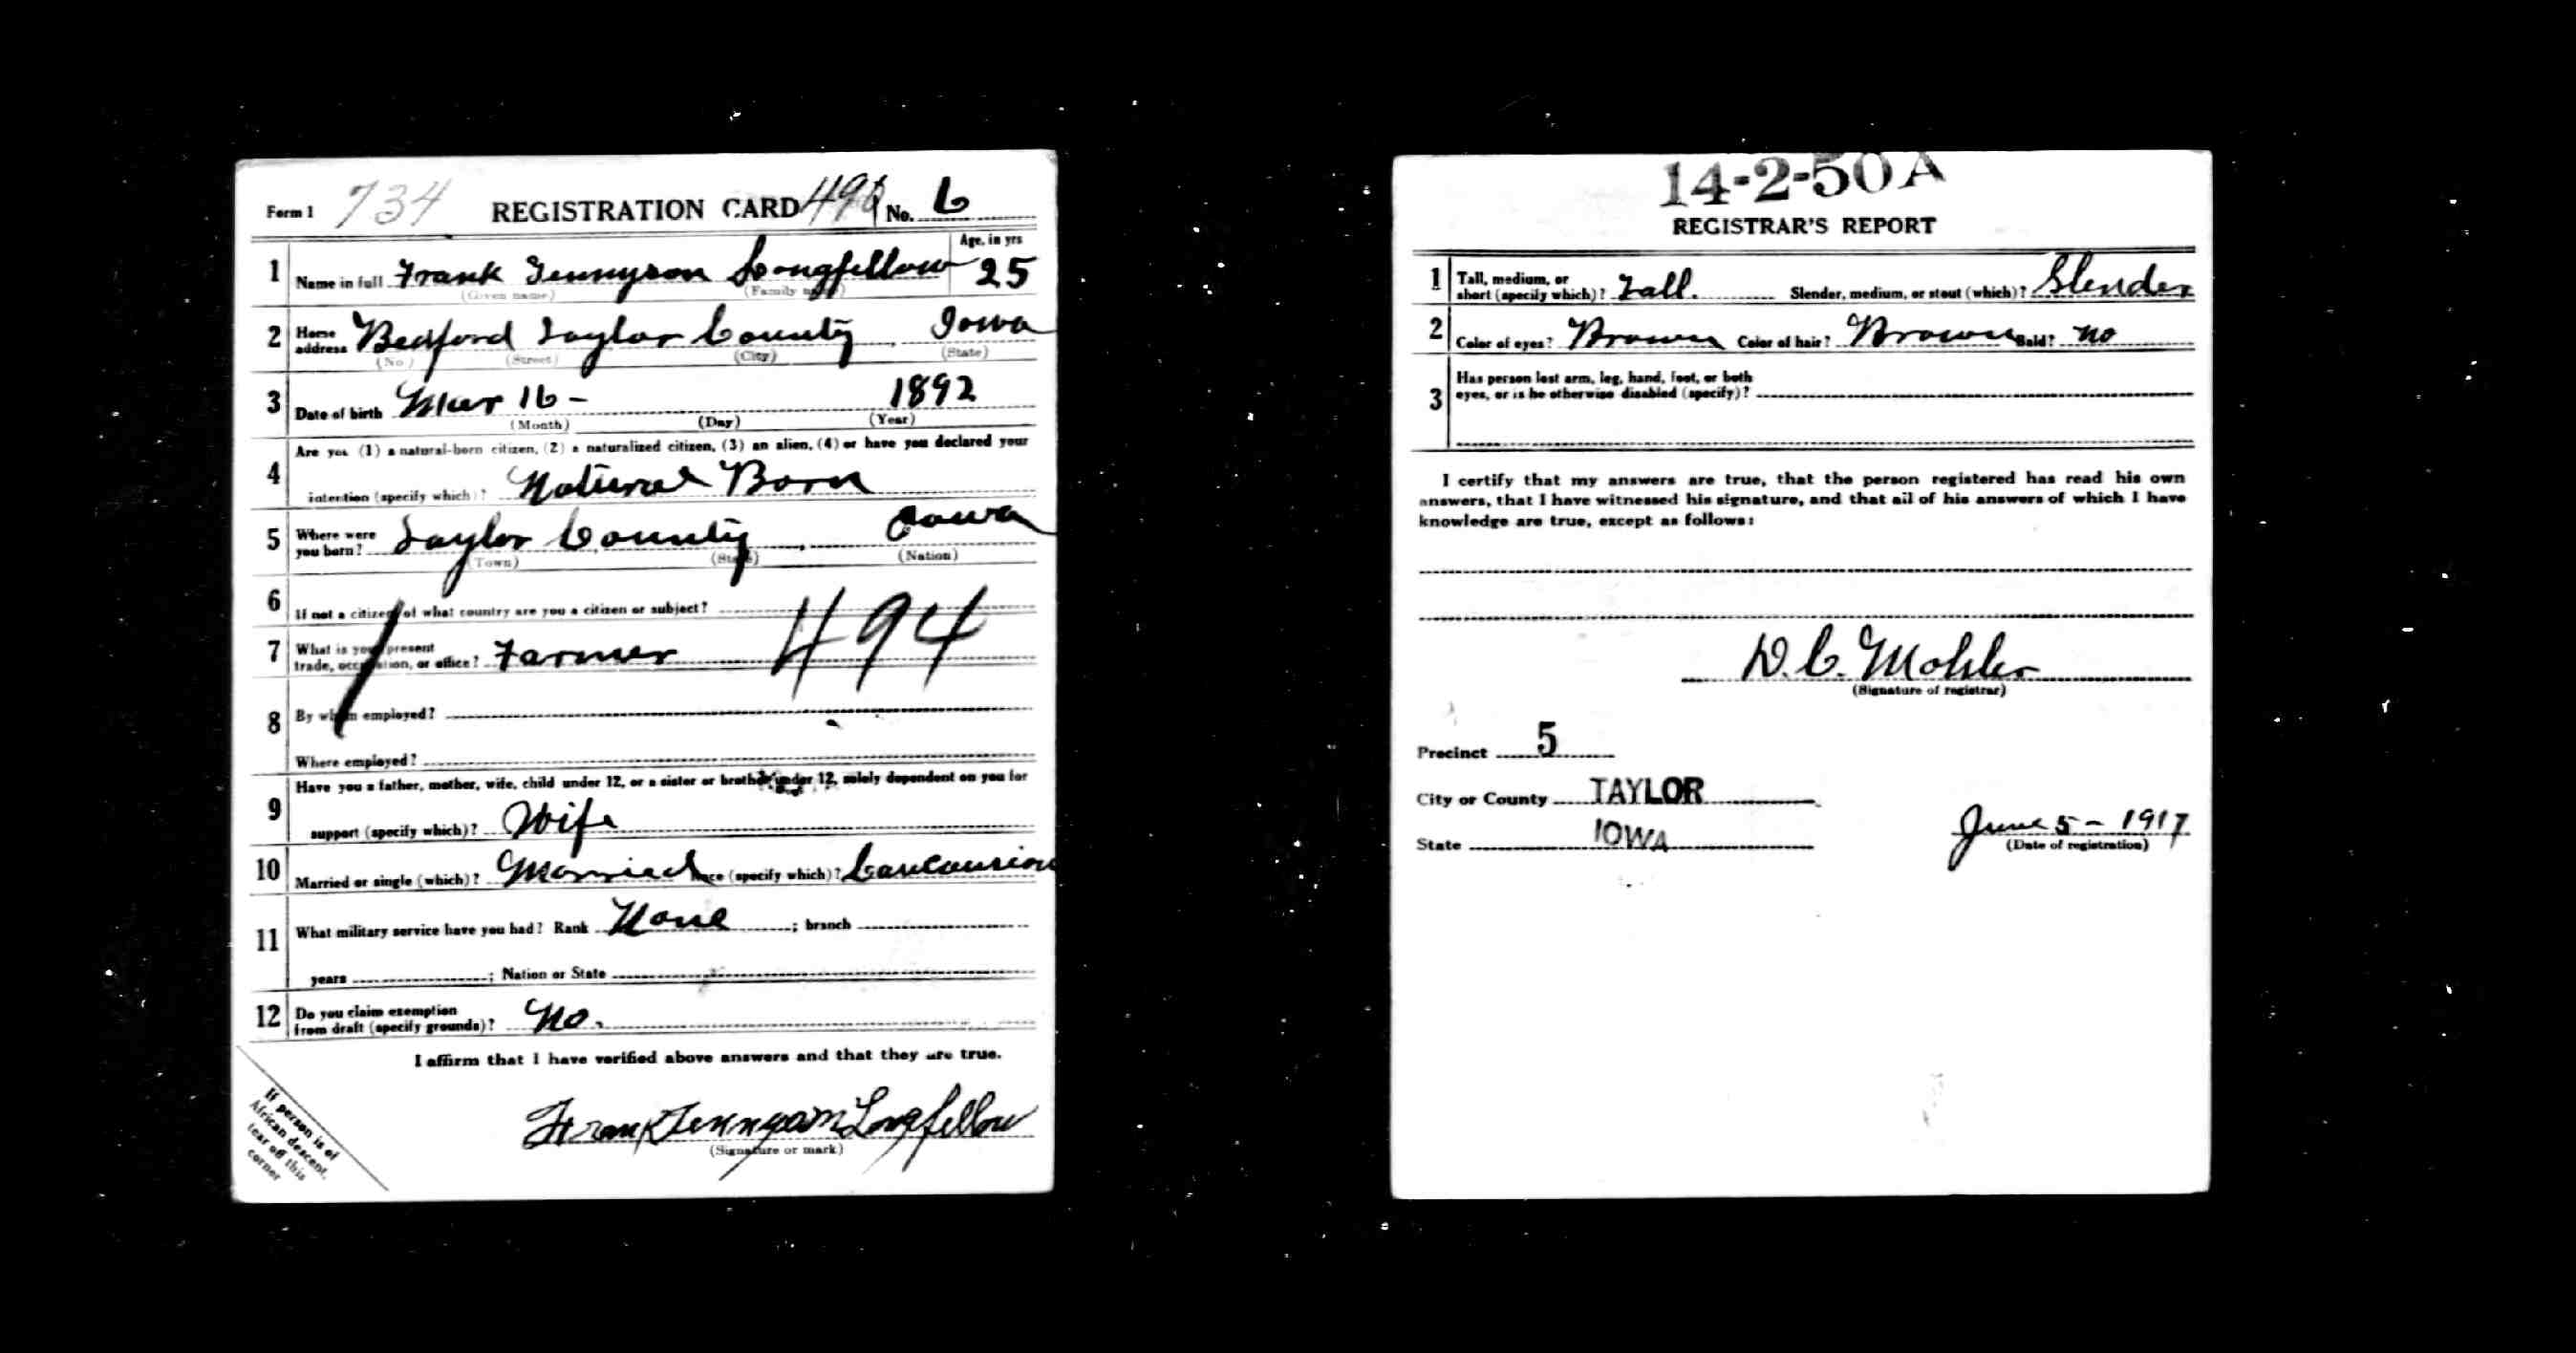 Form 1 734 REGISTRATION CARD No. 6
Age, in yrs
1 Name in full Frank Tennyson Longfellow 25
(Given name) (Family name)
2 Home address Bedford Taylor County, Iowa
(No.) (Street) (City) (State)
3 Date of birth Mar 16 - 1892
(Month) (Day) (Year)
4 Are you (1) a natural-born citizen, (2) a naturalized citizen, (3) an alien, (4) or have you declared your
intention (specify which)? Natural Born
5 Where were you born? Taylor County, Iowa
(Town) (State) (Nation)
6 If not a citizen of what country are you a citizen or subject?
7 What is your present
trade, occupation, or office? Farmer 494
8 By whom employed?
Where employed?
9 Have you a father, mother, wife, child under 12, or a sister or brother under 12, solely dependent on you for
support (specify which)? Wife
10 Married or single (which)? Married Race (specify which)? Caucausion
11 What military service have you had? Rank None ; branch
years ; Nation or State
12 Do you claim exemption
from draft (specify grounds)? No.
I affirm that I have verified above answers and that they are true.
Frank Tennyson Longfellow
(Signature or mark)
If person is of
African descent,
tear off this
corner
14-2-50 A
REGISTRAR'S REPORT
1 Tall, medium, or
short (specify which)? Tall. Slender, medium, or stout (which)? Slender
2 Color of eyes? Brown Color of hair? Brown Bald? No
3 Has person lost arm, leg, hand, foot, or both
eyes, or is he otherwise disabled (specify)?
I certify that my answers are true, that the person registered has read his own
answers, that I have witnessed his signature, and that all of his answers of which I have
knowledge are true, except as follows:
D. C. Mohler
(Signature of registrar)
Precinct 5
City or County TAYLOR
State IOWA
June 5 - 1917
(Date of registration)